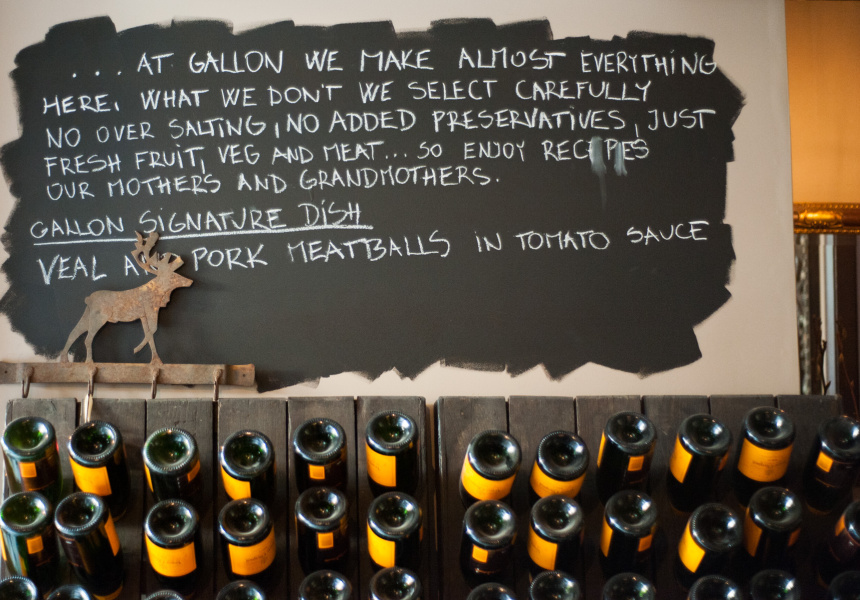 ... AT GALLON WE MAKE ALMOST EVERYTHING
HERE, WHAT WE DON'T WE SELECT CAREFULLY
NO OVER SALTING, NO ADDED PRESERVATIVES, JUST
FRESH FRUIT, VEG AND MEAT... SO ENJOY RECIPES
OUR MOTHERS AND GRANDMOTHERS.
GALLON SIGNATURE DISH
VEAL AND PORK MEATBALLS IN TOMATO SAUCE